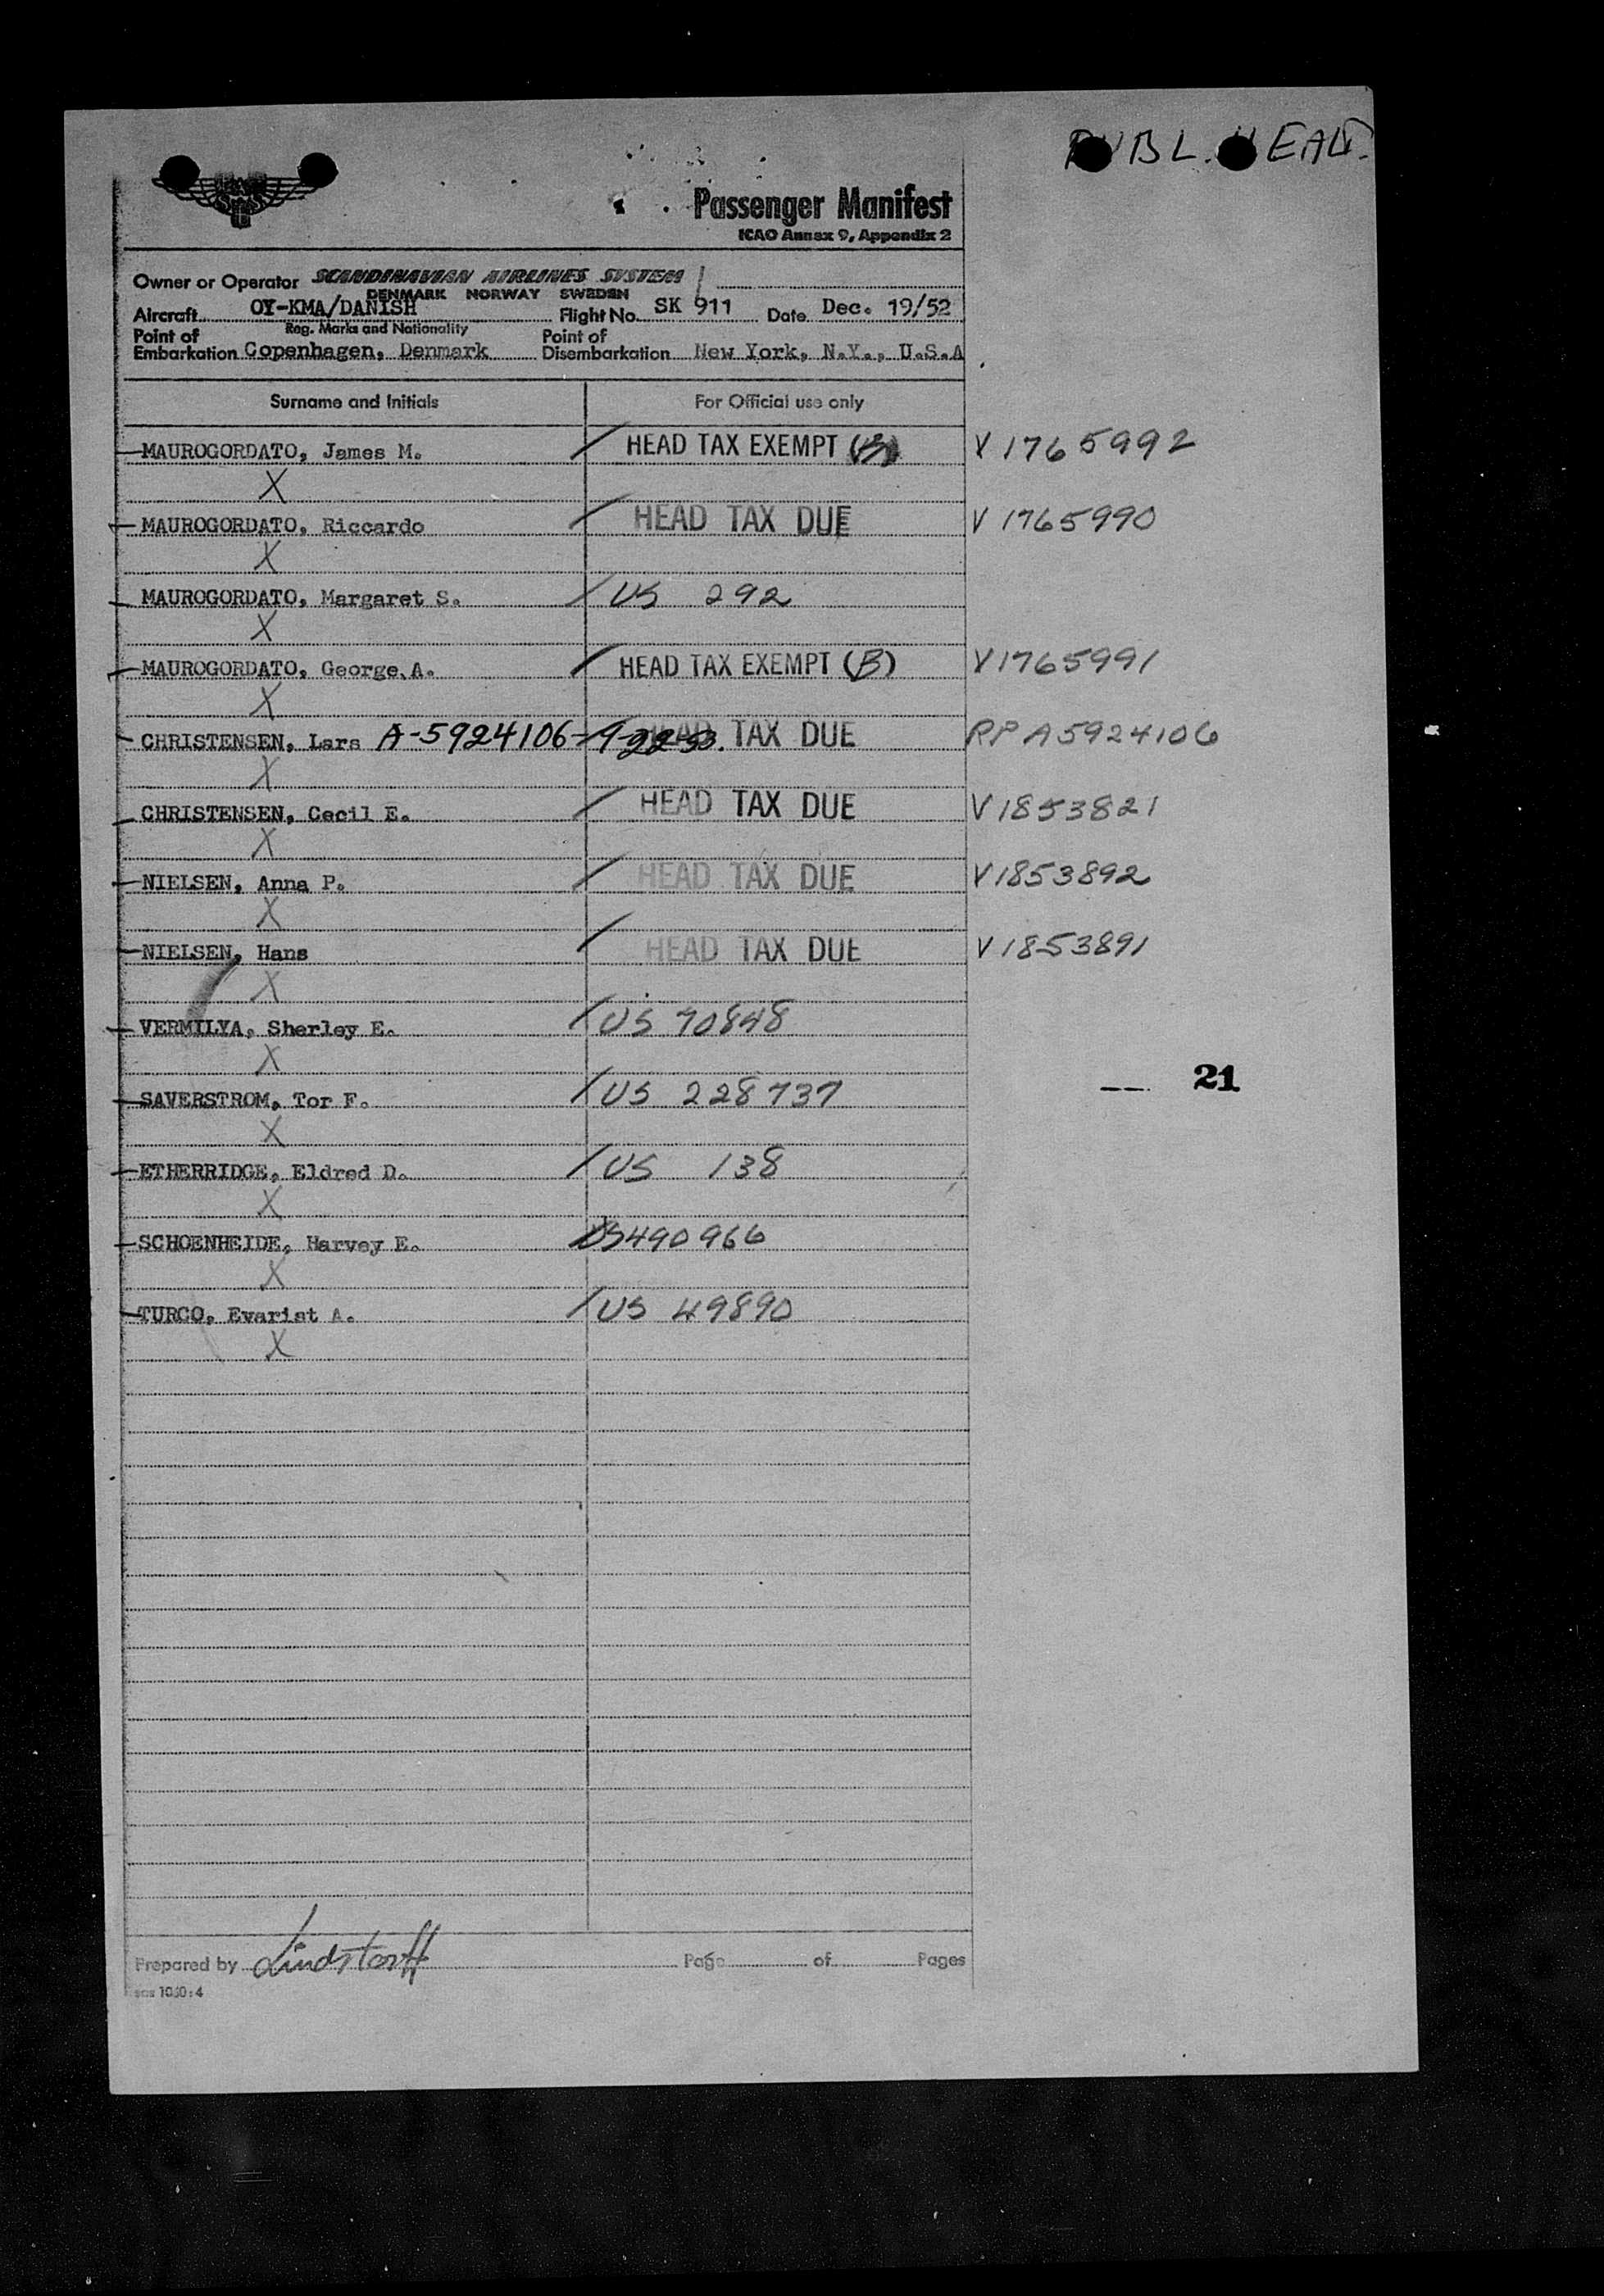 PUBL. HEALT.
SAS
Passenger Manifest
ICAO Annex 9, Appendix 2
Owner or Operator SCANDINAVIAN AIRLINES SYSTEM
DENMARK NORWAY SWEDEN
Aircraft OY-KMA/DANISH Flight No. SK 911 Date Dec. 19/52
Reg. Marks and Nationality
Point of Embarkation Copenhagen, Denmark Point of Disembarkation New York, N.Y., U.S.A.
Surname and Initials For Official use only
MAUROGORDATO, James M. / HEAD TAX EXEMPT (B) V 1765992
X
MAUROGORDATO, Riccardo / HEAD TAX DUE V 1765990
X
MAUROGORDATO, Margaret S. / US 292
X
MAUROGORDATO, George A. / HEAD TAX EXEMPT (B) V1765991
X
CHRISTENSEN, Lars A-5924106-9-22-53. HEAD TAX DUE RP A5924106
X
CHRISTENSEN, Cecil E. / HEAD TAX DUE V1853821
X
NIELSEN, Anna P. / HEAD TAX DUE V1853892
X
NIELSEN, Hans / HEAD TAX DUE V1853891
X
VERMILYA, Sherley E. / US 70848
X
21
SAVERSTROM, Tor F. / US 228737
X
ETHERRIDGE, Eldred D. / US 138
X
SCHOENHEIDE, Harvey E. US490966
X
TURCO, Evarist A. / US 49890
X
Prepared by Lindstorff Page of Pages
sas 1030:4